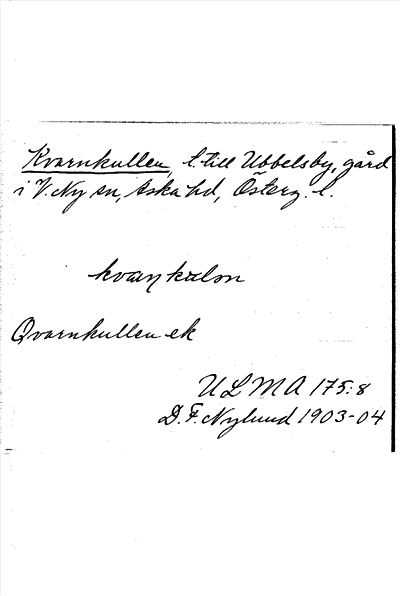 Kvarnkullen, t. till Ubbelsby, gård
i V. Ny sn, Aska hd, Österg. l.
kvaɳkulən
Qvarnkullen ek
ULMA 175:8
D. F. Nylund 1903-04